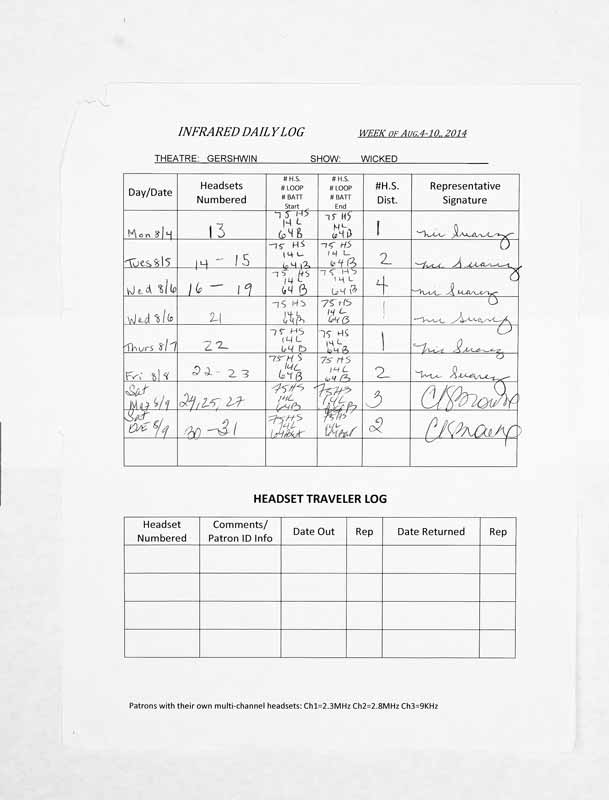 INFRARED DAILY LOG WEEK OF AUG.4-10,, 2014
THEATRE: GERSHWIN SHOW: WICKED
Day/Date Headsets Numbered # H.S. # LOOP # BATT Start # H.S. # LOOP # BATT End #H.S. Dist. Representative Signature
Mon 8/4 13 75 HS 14 L 64 B 75 HS 14 L 64 B 1 Suarez
Tues 8/5 14 - 15 75 HS 14 L 64 B 75 HS 14 L 64 B 2 Suarez
Wed 8/6 16 - 19 75 HS 14 L 64 B 75 HS 14 L 64 B 4 Suarez
Wed 8/6 21 75 HS 14 L 64 B 75 HS 14 L 64 B 1 Suarez
Thurs 8/7 22 75 HS 14 L 64 B 75 HS 14 L 64 B 1 Suarez
Fri 8/8 22 - 23 75 HS 14 L 64 B 75 HS 14 L 64 B 2 Suarez
Sat 8/9 24, 25, 27 75 HS 14 L 64 B 75 HS 14 L 3
Sat 8/9 30 - 31 75 HS 14 L 75 HS 14 L 2
HEADSET TRAVELER LOG
Headset Numbered Comments/ Patron ID Info Date Out Rep Date Returned Rep
Patrons with their own multi-channel headsets: Ch1=2.3MHz Ch2=2.8MHz Ch3=9KHz